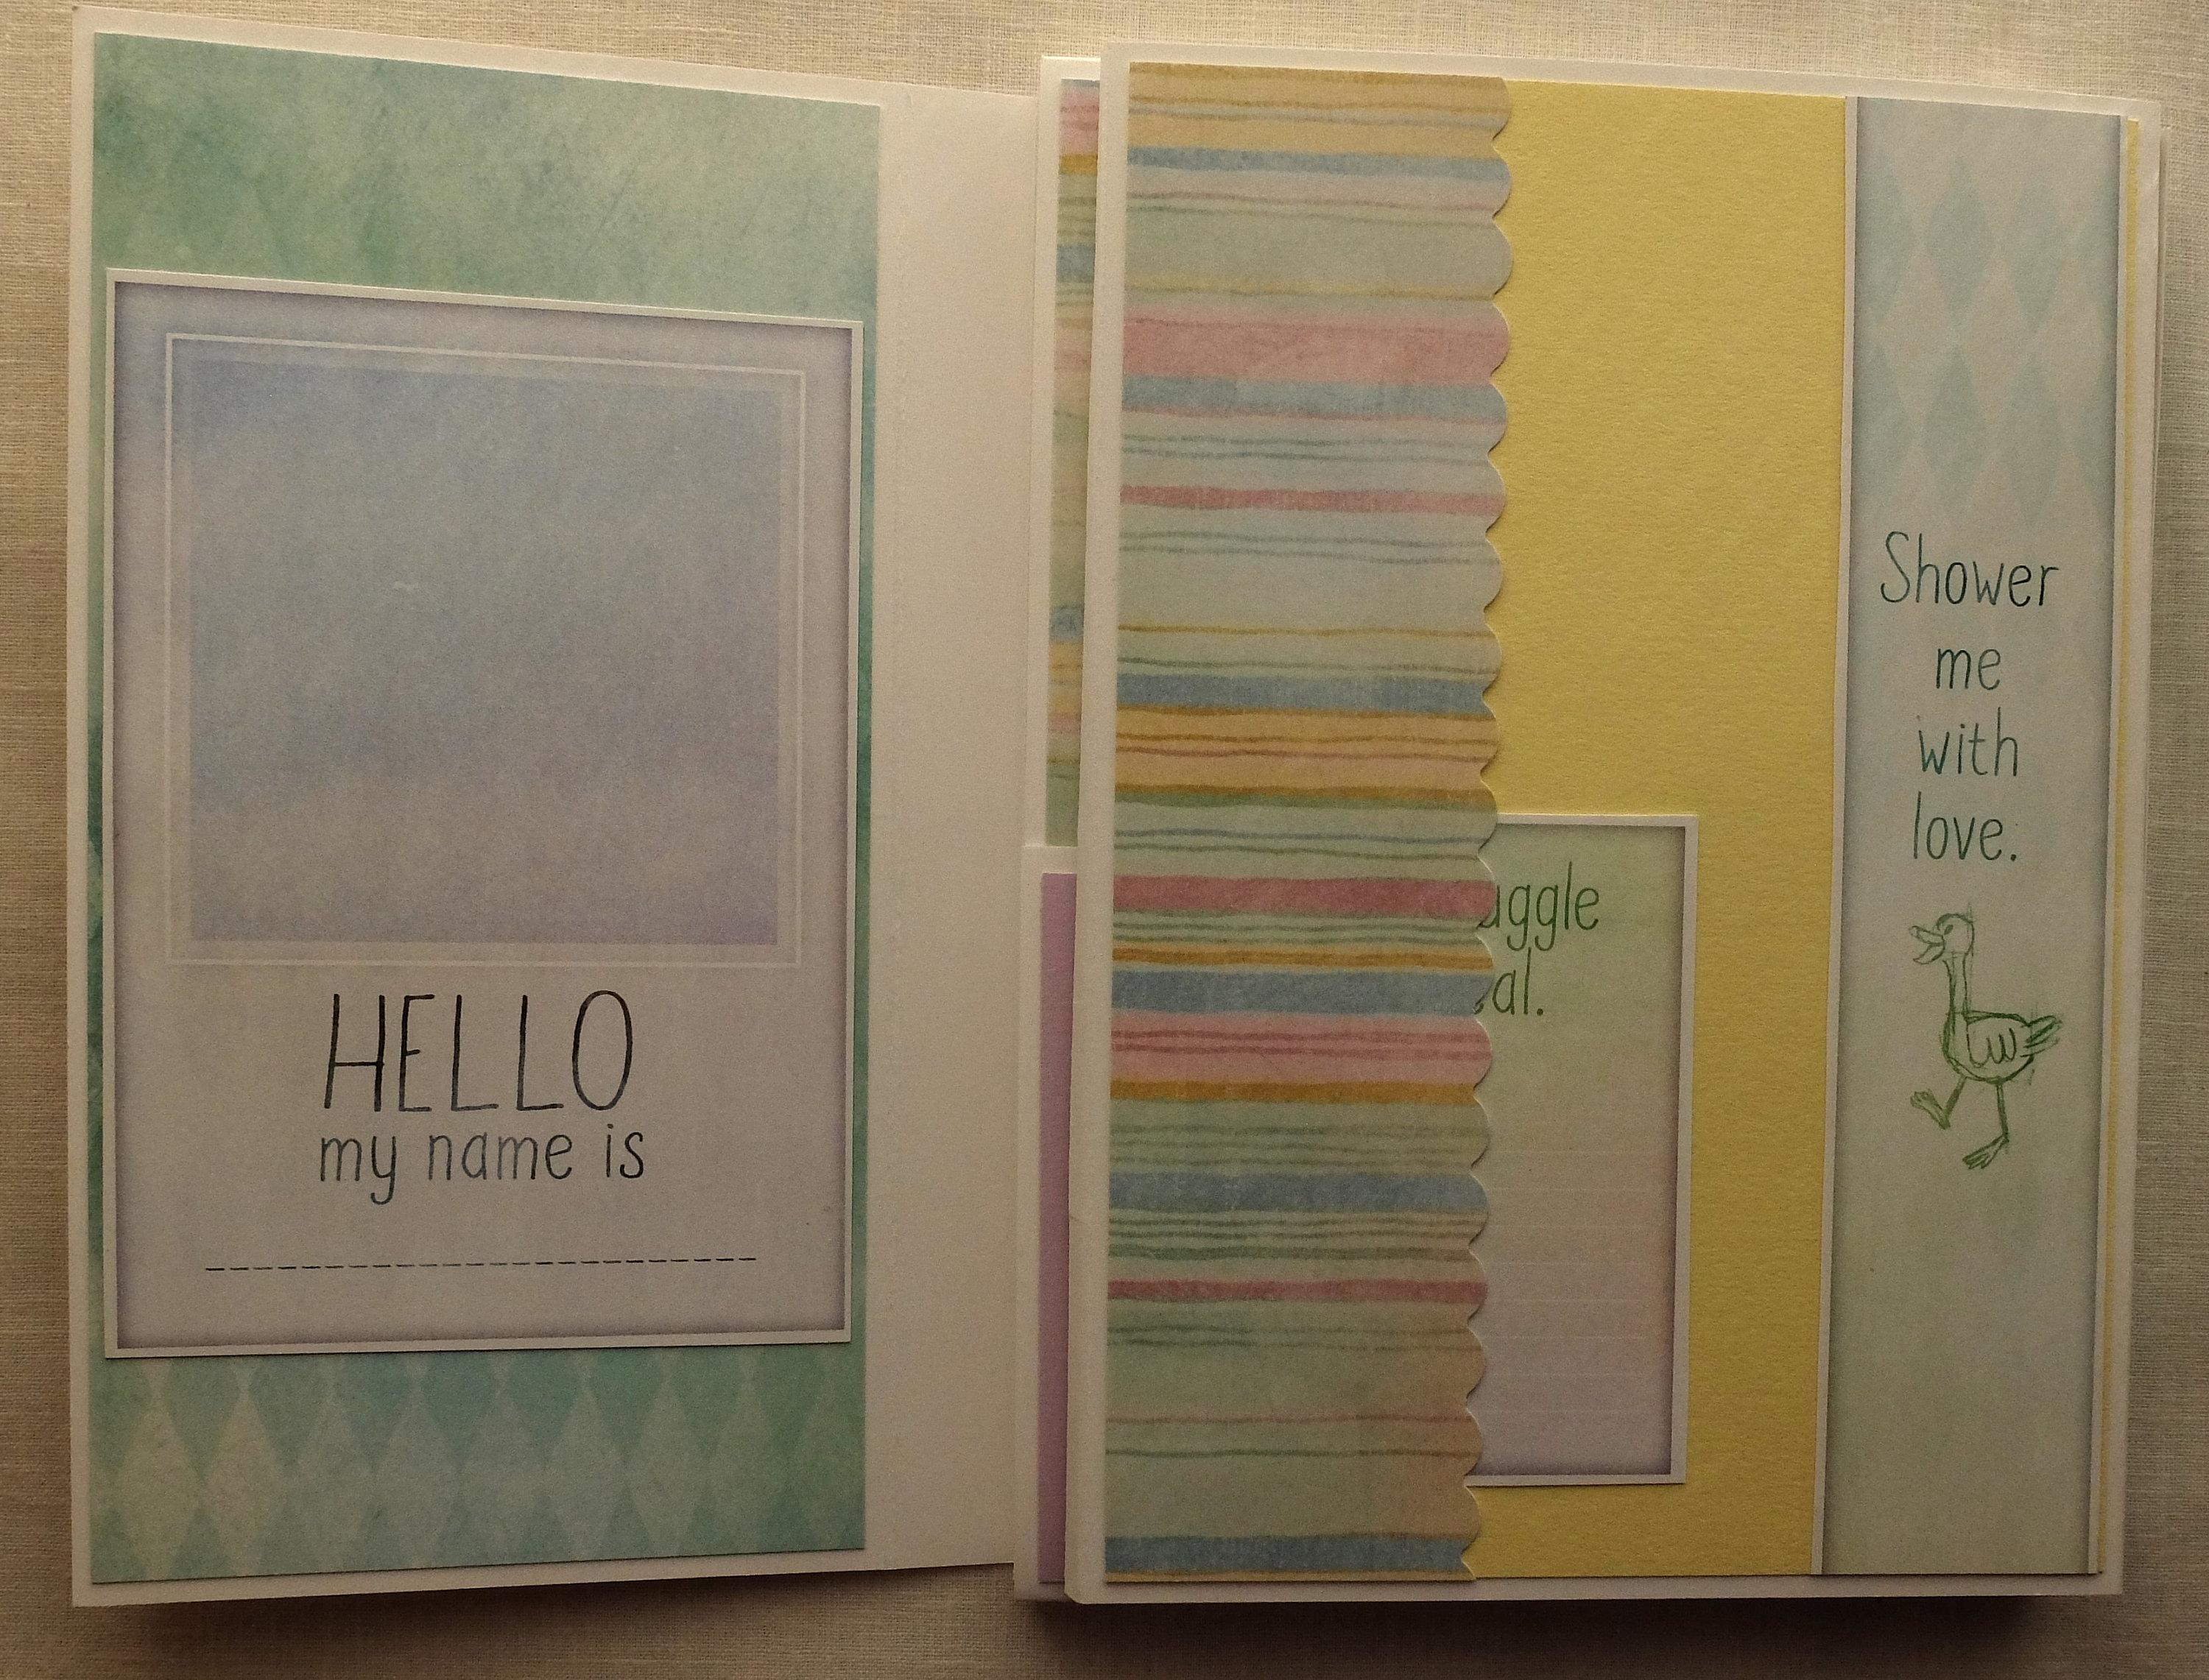 HELLO
my name is
uggle
al.
Shower
me
with
love.